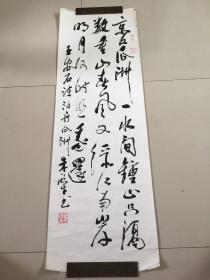 京口瓜洲一水间钟山只隔
数重山春风又绿江南岸
明月何时照我还
王安石诗泊船瓜洲